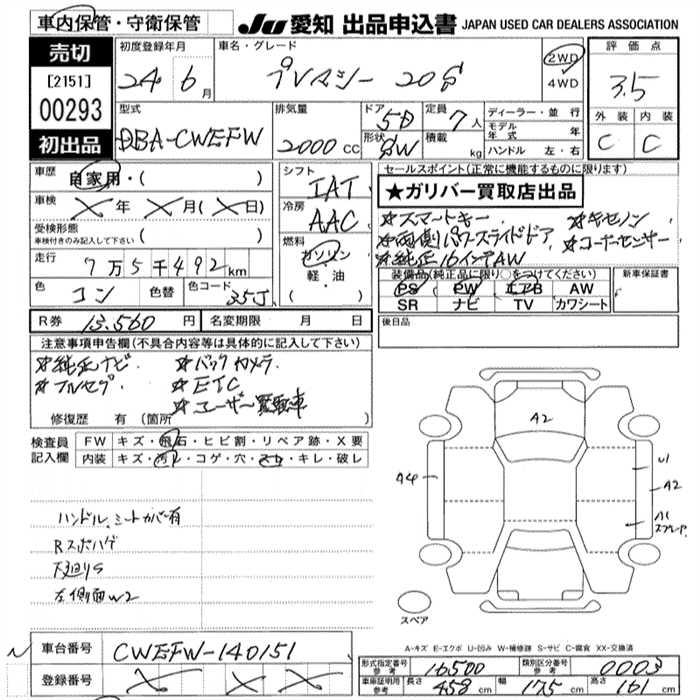 車内保管・守衛保管
JU 愛知 出品申込書 JAPAN USED CAR DEALERS ASSOCIATION
売切
[2151]
00293
初出品
初度登録年月
24 6月
車名・グレード
プレマシー 20S
2WD
4WD
評価点
3.5
外装 内装
C C
型式
DBA-CWEFW
排気量
2000cc
ドア 5D
形状 SW
定員 7人
積載 kg
ディーラー・並行
モデル年式 年
ハンドル 左・右
車歴
自家用・( )
車検
X年 X月(X日)
受検形態
車検付きのみ記入して下さい ( )
走行
7万5千492km
色
コン 色替 色コード 35J
シフト
IAT
冷房
AAC
燃料
ガソリン
軽・油
( )
セールスポイント(正常に機能するものに限ります)
★ガリバー買取店出品
☆スマートキー ☆キセノン
☆両側パワースライドドア ☆コーナーセンサー
☆純正16インチAW
装備品(純正品に限り○をつけてください) 新車保証書
PS PW エアB AW
SR ナビ TV カワシート
後日品
R券 13,560円 名変期限 月 日
注意事項申告欄(不具合内容等は具体的に記入して下さい)
☆純正ナビ ☆バックカメラ
☆フルセグ ☆ETC
☆ユーザー買取車
修復歴 有(箇所 )
検査員記入欄
FW キズ・飛石・ヒビ割・リペア跡・X要
内装 キズ・汚レ・コゲ・穴・スレ・キレ・破レ
ハンドル、シートカバー有
Rスポハゲ
下廻りS
左側面W2
A2
A4
U1
A2
A1
スプレー
スペア
A-キズ E-エクボ U-凹み W-補修跡 S-サビ C-腐食 XX-交換済
車台番号 CWEFW-140151
登録番号 X X X
形式指定番号参考 16500 類別区分番号参考 0003
車庫証明用参考 長さ 458cm 幅 175cm 高さ 161cm